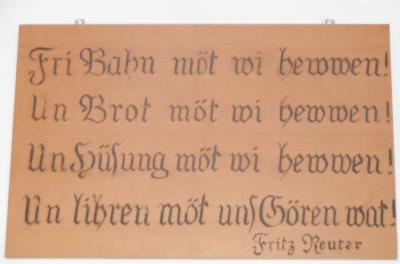 Fri Bahn möt wi hewwen!
Un Brot möt wi hewwen!
Un Hüsung möt wi hewwen!
Un lihren möt uns Gören wat!
Fritz Reuter